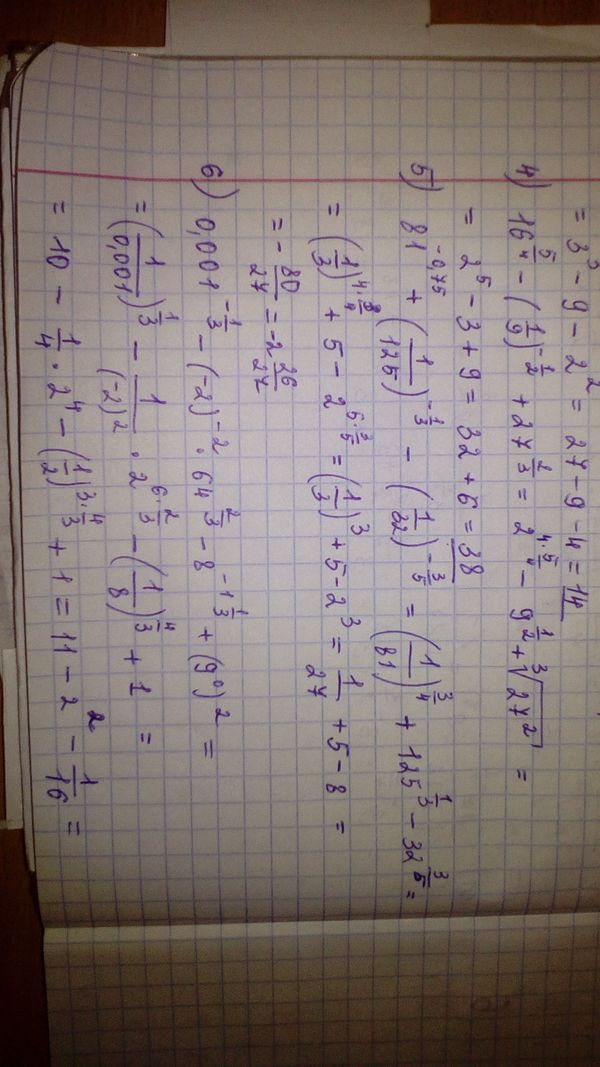 = 3³ - 9 - 2² = 27 - 9 - 4 = 14
4) 16^(5/4) - (1/9)^(-1/2) + 27^(2/3) = 2^(4·5/4) - 9^(1/2) + ∛(27²) =
= 2⁵ - 3 + 9 = 32 + 6 = 38
5) 81^(-0,75) + (1/125)^(-1/3) - (1/32)^(-3/5) = (1/81)^(3/4) + 125^(1/3) - 32^(3/5) =
= (1/3)^(4·3/4) + 5 - 2^(5·3/5) = (1/3)³ + 5 - 2³ = 1/27 + 5 - 8 =
= - 80/27 = -2 26/27
6) 0,001^(-1/3) - (-2)^(-2) · 64^(2/3) - 8^(-1 1/3) + (9⁰)² =
= (1/0,001)^(1/3) - 1/(-2)² · 2^(6·2/3) - (1/8)^(4/3) + 1 =
= 10 - 1/4 · 2⁴ - (1/2)^(3·4/3) + 1 = 11 - 2² - 1/16 =